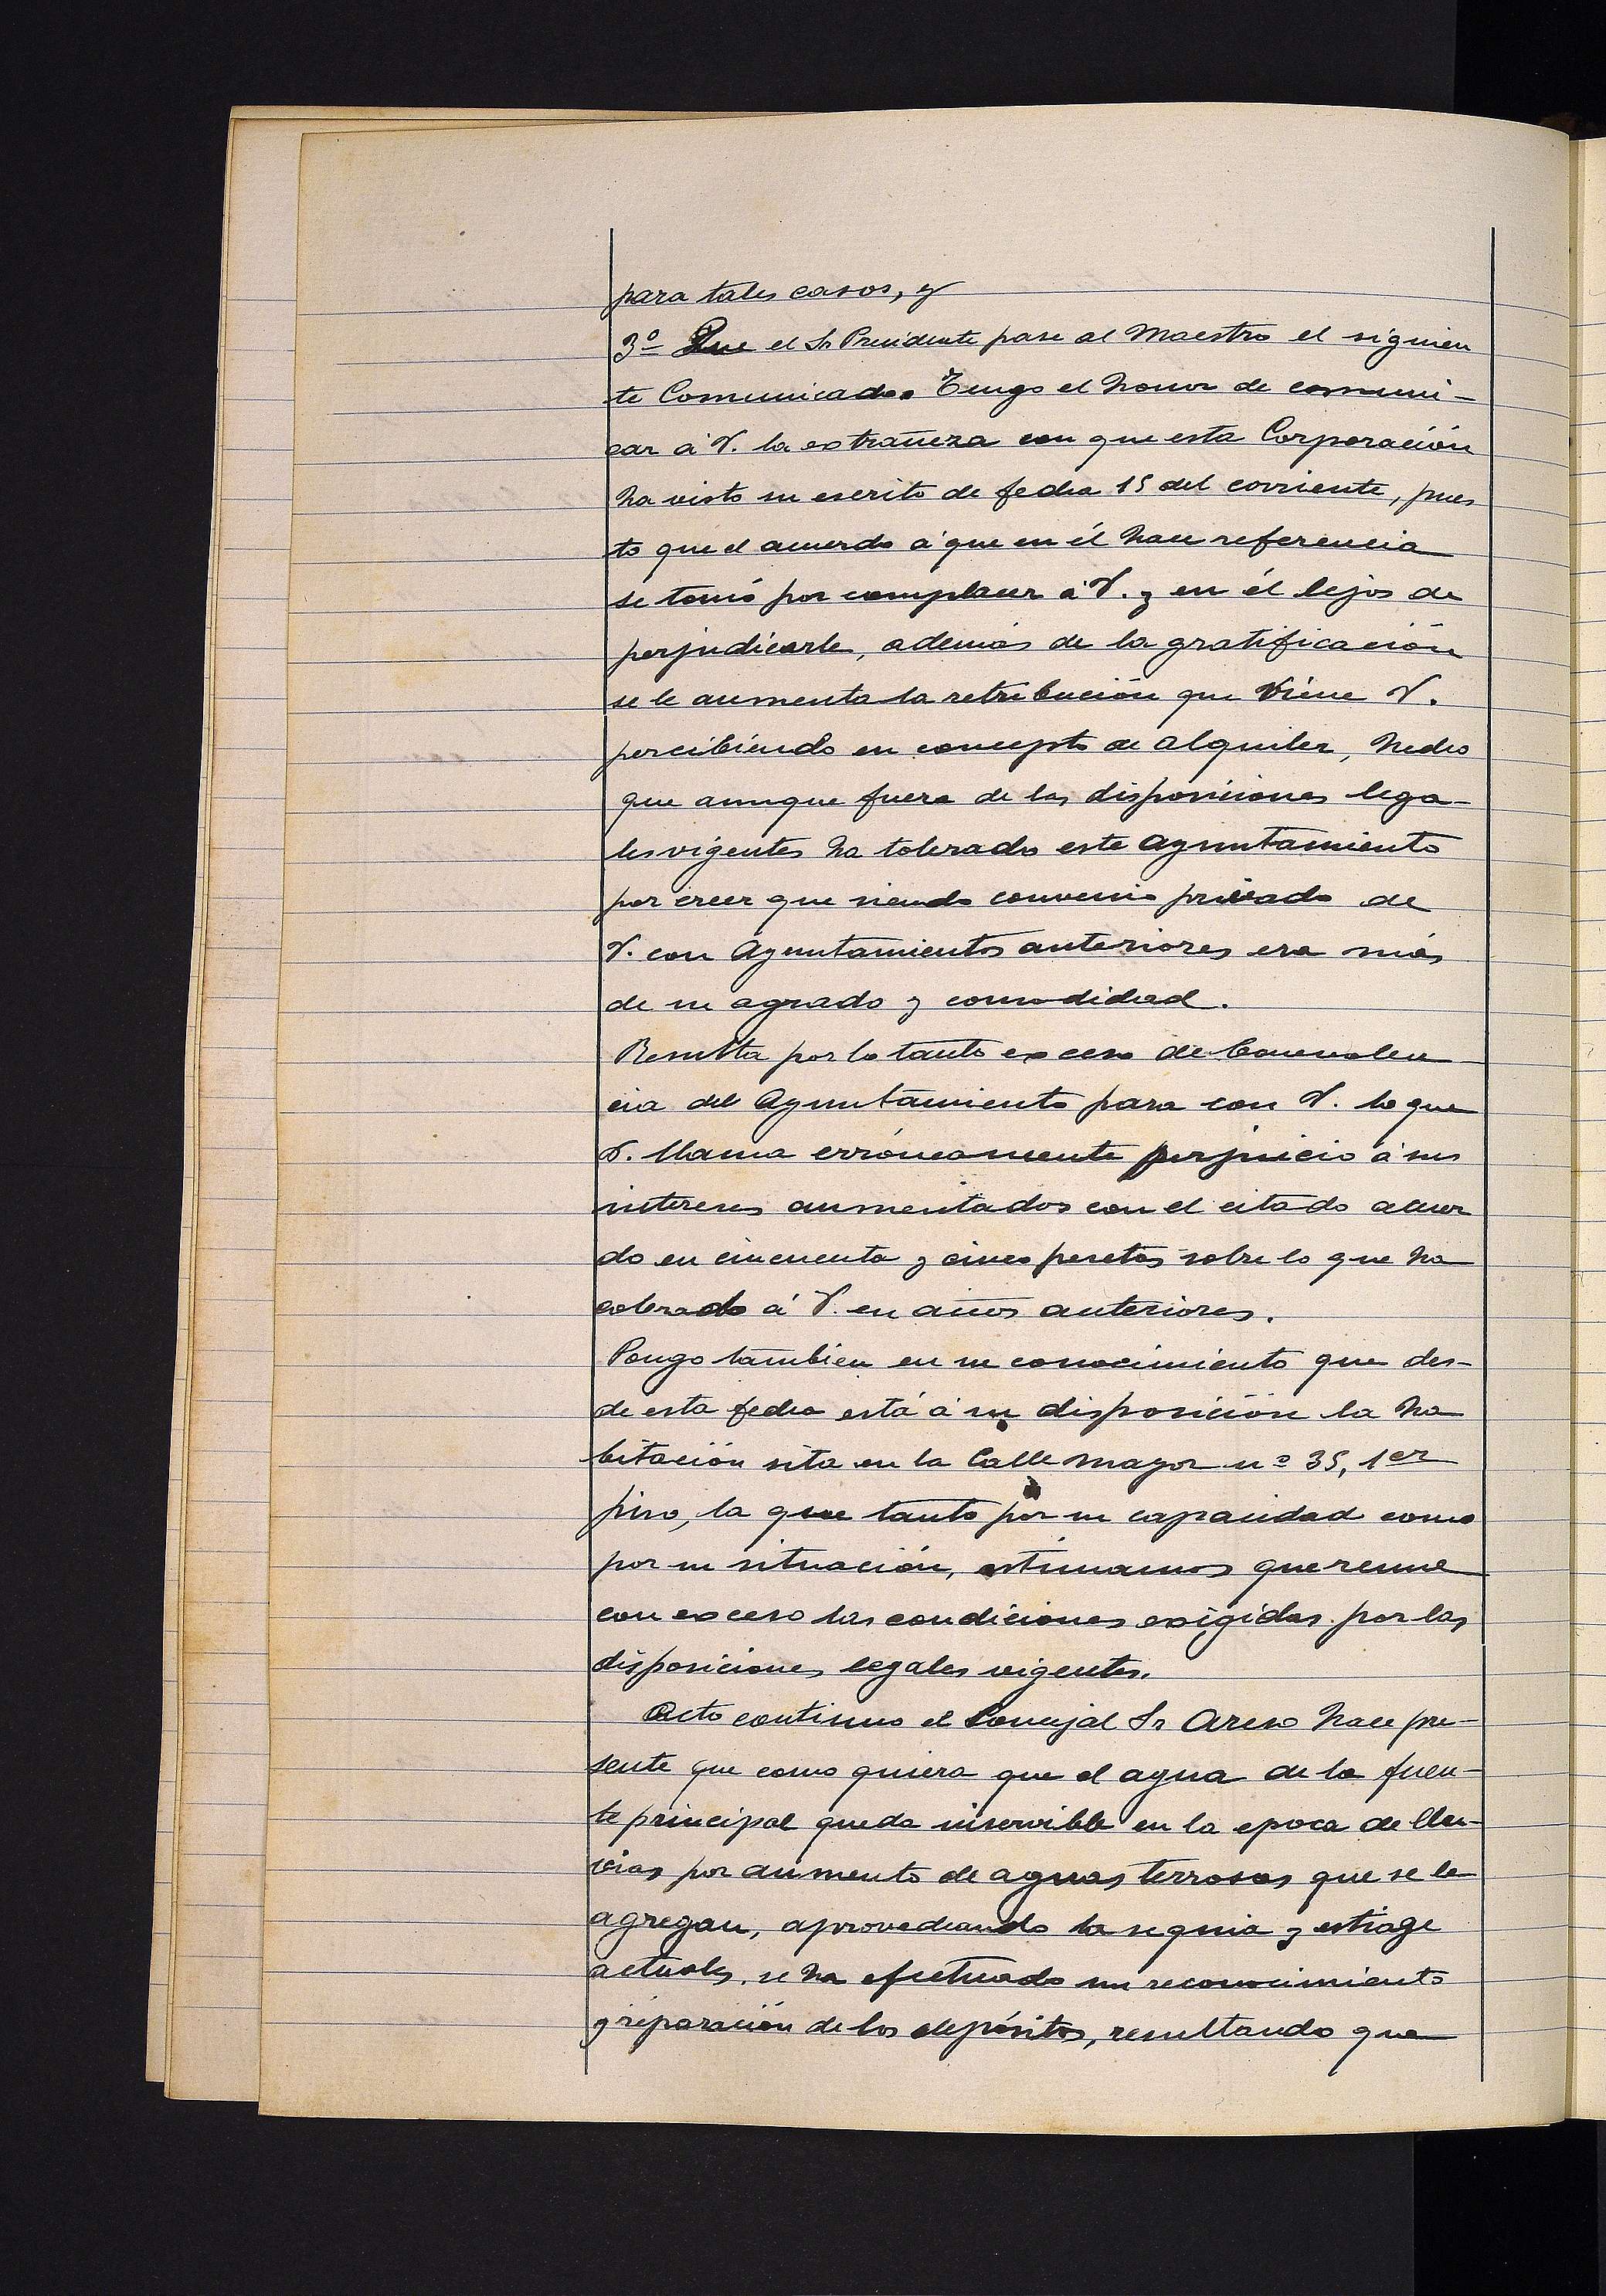 para tales casos, y
3º Que el Sr Presidente pase al Maestro el siguien
te Comunicado. Tengo el honor de comuni-
car á V. la extrañeza con que esta Corporación
ha visto su escrito de fecha 15 del corriente, pues
to que el acuerdo á que en él hace referencia
se tomó por complacer á V. y en él lejos de
perjudicarle, además de la gratificación
se le aumenta la retribución que viene V.
percibiendo en concepto de alquiler, hecho
que aunque fuera de las disposiciones lega-
les vigentes ha tolerado este Ayuntamiento
por creer que siendo convenio privado de
V. con Ayuntamientos anteriores era más
de su agrado y comodidad.
Resulta por lo tanto exceso de benevolen
cia del Ayuntamiento para con V. lo que
V. llama erróneamente perjuicio á sus
intereses aumentados con el citado acuer
do en cincuenta y cinco pesetas sobre lo que ha
cobrado á V. en años anteriores.
Pongo tambien en su conocimiento que des-
de esta fecha está á su disposición la ha
bitación sita en la Calle mayor nº 35, 1er
piso, la que tanto por su capacidad como
por su situación, estimamos que reune
con exceso las condiciones exigidas por las
disposiciones legales vigentes.
Acto continuo el Concejal Sr Areso hace pre-
sente que como quiera que el agua de la fuen-
te principal queda inservible en la epoca de llu-
vias por aumento de aguas terrosas que se le
agregan, aprovechando la sequia y estiage
actuales, se ha efectuado un reconocimiento
y reparación de los depósitos, resultando que